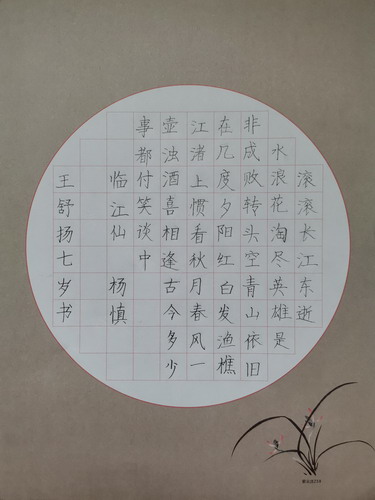 滚滚长江东逝
水浪花淘尽英雄是
非成败转头空青山依旧
在几度夕阳红白发渔樵
江渚上惯看秋月春风一
壶浊酒喜相逢古今多少
事都付笑谈中
临江仙 杨慎
王舒扬七岁书